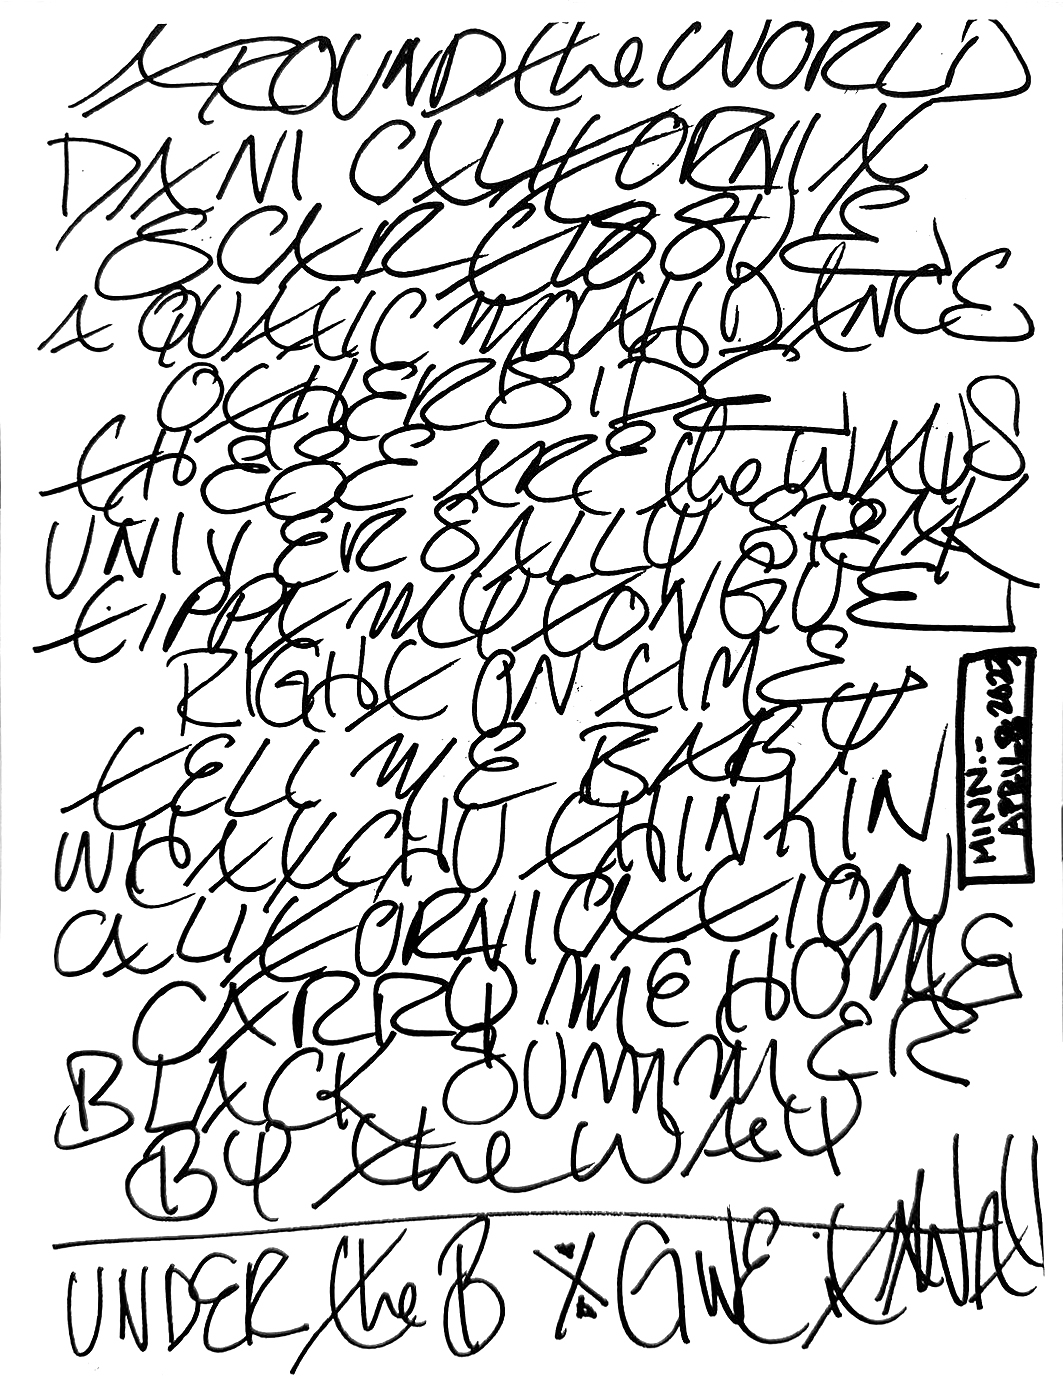 AROUND the WORLD
DANI CALIFORNIA
SCAR TISSUE
AQUATIC MOUTH DANCE
OTHERSIDE
THESE ARE the WAYS
UNIVERSALLY SPEAK
TIPPA MY TONGUE
RIGHT ON TIME
TELL ME BABY
WHATCHU THINKIN
CALIFORNICATION
CARRY ME HOME
BLACK SUMMER
BY the WAY
UNDER the B X GIVE it AWAY
MINN.-
APRIL 8 2023